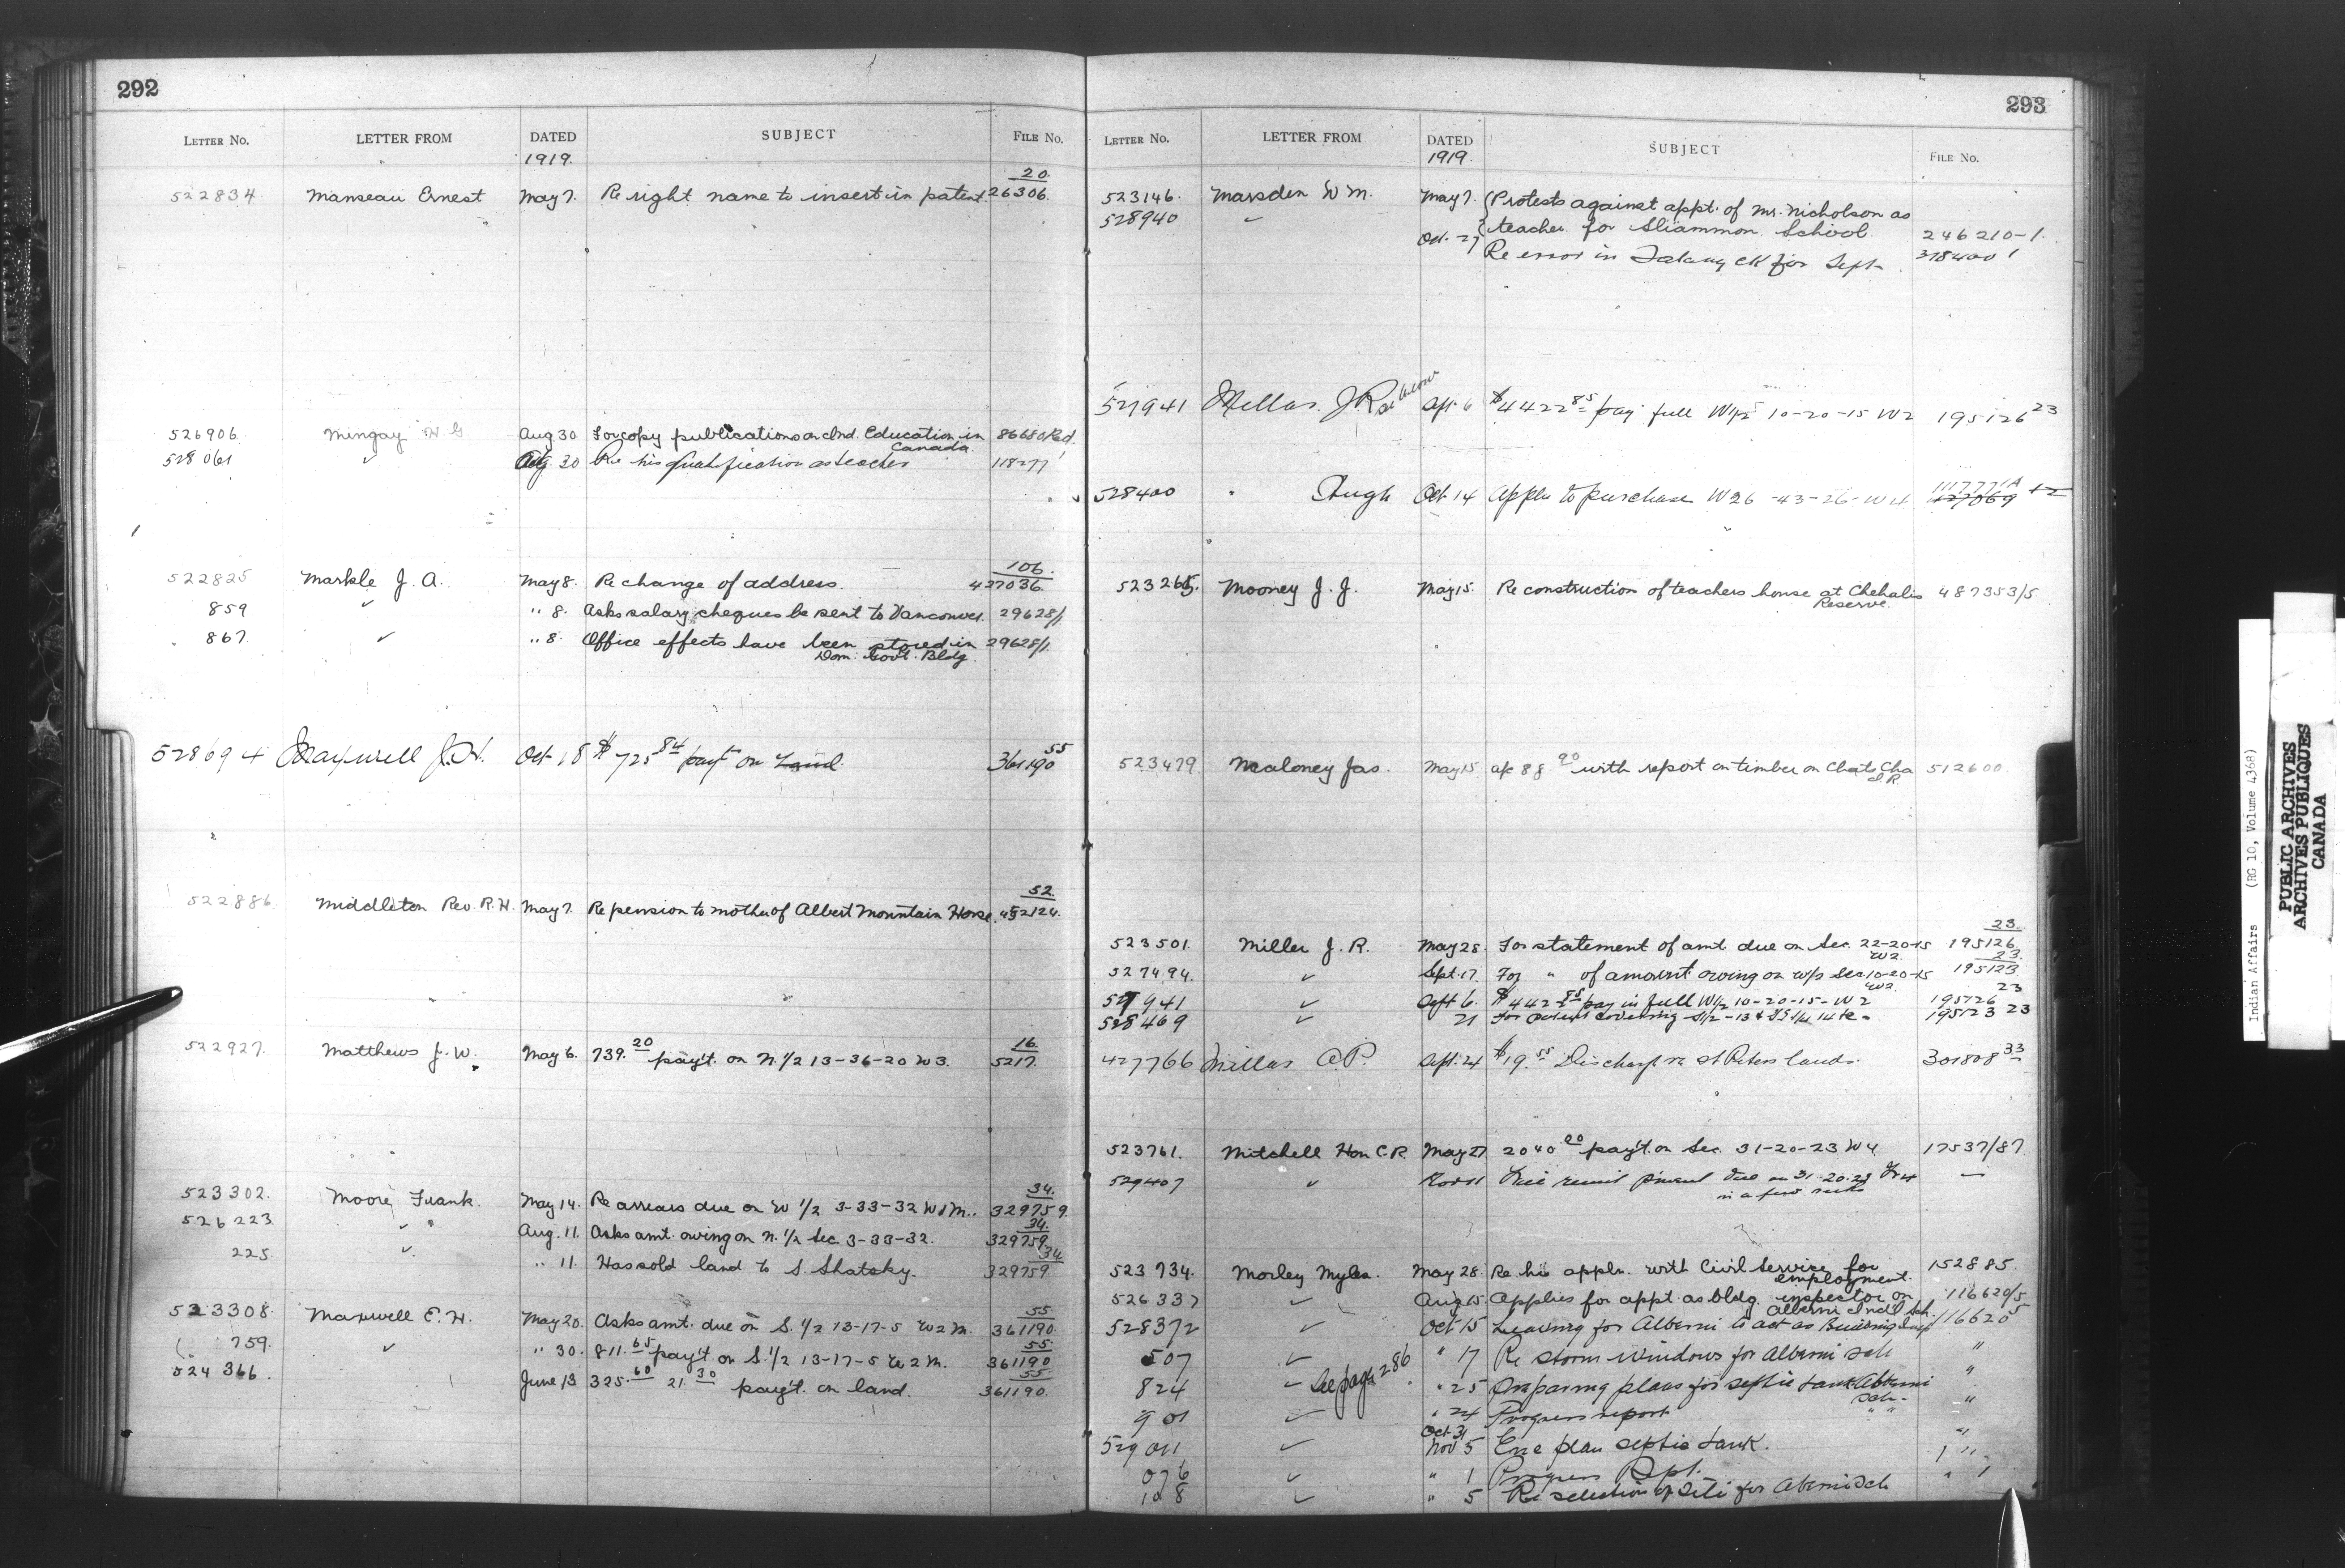 292
LETTER NO. LETTER FROM DATED SUBJECT FILE NO.
1919.
20.
522834 Manseau Ernest May 7. Re right name to insert in patent 26306.
526906. Mingay H G Aug 30 For copy publications on Ind. Education in 86680 Rd.
Canada
528061 ✓ Aug 30 Re his qualification as teacher 118277
106.
522825 Markle J. A. May 8. Re change of address. 427036.
859 ✓ " 8. Asks salary cheques be sent to Vancouver. 29628/1
867. ✓ " 8. Office effects have been stored in 29628/1.
Dom. Govt. Bldg.
55
528694 Maxwell J.H. Oct 18 $725 84 payt on Land. 361190
52.
522886. Middleton Rev. R. H. May 7. Re pension to mother of Albert Mountain Horse. 452124.
16.
522927. Matthews J. W. May 6. 739. 20 pay't. on N. 1/2 13-36-20 W3. 5217.
34.
523302. Moore Frank. May 14. Re arrears due on W 1/2 3-33-32 W1M. 329759.
34.
526223 ✓ " Aug. 11. Asks amt. owing on N. 1/2 Sec 3-33-32. 329759.
34
225. ✓ " 11. Has sold land to S. Shatsky. 329759
55
523308. Maxwell E. H. May 20. Asks amt. due on S. 1/2 13-17-5 W2M. 361190.
55
759. ✓ " 30. 811. 65 pay't. on S. 1/2 13-17-5 W2M. 361190
55
524366. June 13 325. 60 21. 30 pay't. on land. 361190.
293
LETTER NO. LETTER FROM DATED SUBJECT FILE NO.
1919.
523146. Marsden W M. May 7. Protests against appt. of Mr. Nicholson as
528940 ✓ teacher for Sliammon School. 246210-1.
Oct. 27 Re error in Salary ck for Sept 378400 1
527941 Millar J R see below Apr. 6 $4422 85 pay full W1/2 10-20-15 W2 195126 23
117771A
528400 " Hugh Oct 14 Appln to purchase W26-43-26-W4 127069 +2
523265. Mooney J. J. May 15. Re construction of teachers house at Chehalis 487353/5
Reserve.
523479 Maloney Jas. May 15 a/c 88 90 with report on timber on Cheats Cha 512600.
I.R.
23.
523501. Miller J. R. May 28. For statement of amt due on Sec. 22-20-15 195126.
W2. 23.
527494. ✓ Sept. 17. For " of amount owing on w/2 Sec. 10-20-15 195123
W2. 23
527941 ✓ Sept 6. $442 85 pay in full W1/2 10-20-15-W2 195126
528469 ✓ 21 For patent covering 195123 23
427766 Millar A P. Sept. 24 $19. 55 Discharge re St Peters lands. 301808 33
523761. Mitchell Hon C. R. May 27 2040 00 pay't. on Sec. 31-20-23 W4 17537/87
529407 " Nov 11 Will remit payment due on 31-20-23 W4 —
in a few weeks
523734. Morley Myles. May 28. Re his appln. with Civil Service for 152885.
employment.
526337 ✓ Aug 15. Applies for appt. as bldg. inspector on 116620/5
Alberni Ind'l Sch.
528372 ✓ Oct 15 Leaving for Alberni to act as Building Insp 116620 5
507 ✓ " 17 Re storm windows for Alberni Sch "
824 ✓ See page 286 " 25 Preparing plans for septic tank Alberni "
Sch. "
901 ✓ " 24 Progress report " "
Oct 31
529011 ✓ Nov 5 Enc plan septic tank. "
076 ✓ " 1 Progress Rept. "
108 ✓ " 5 Re selection of site for Alberni Sch
Indian Affairs (RG 10, Volume 4368)
PUBLIC ARCHIVES
ARCHIVES PUBLIQUES
CANADA